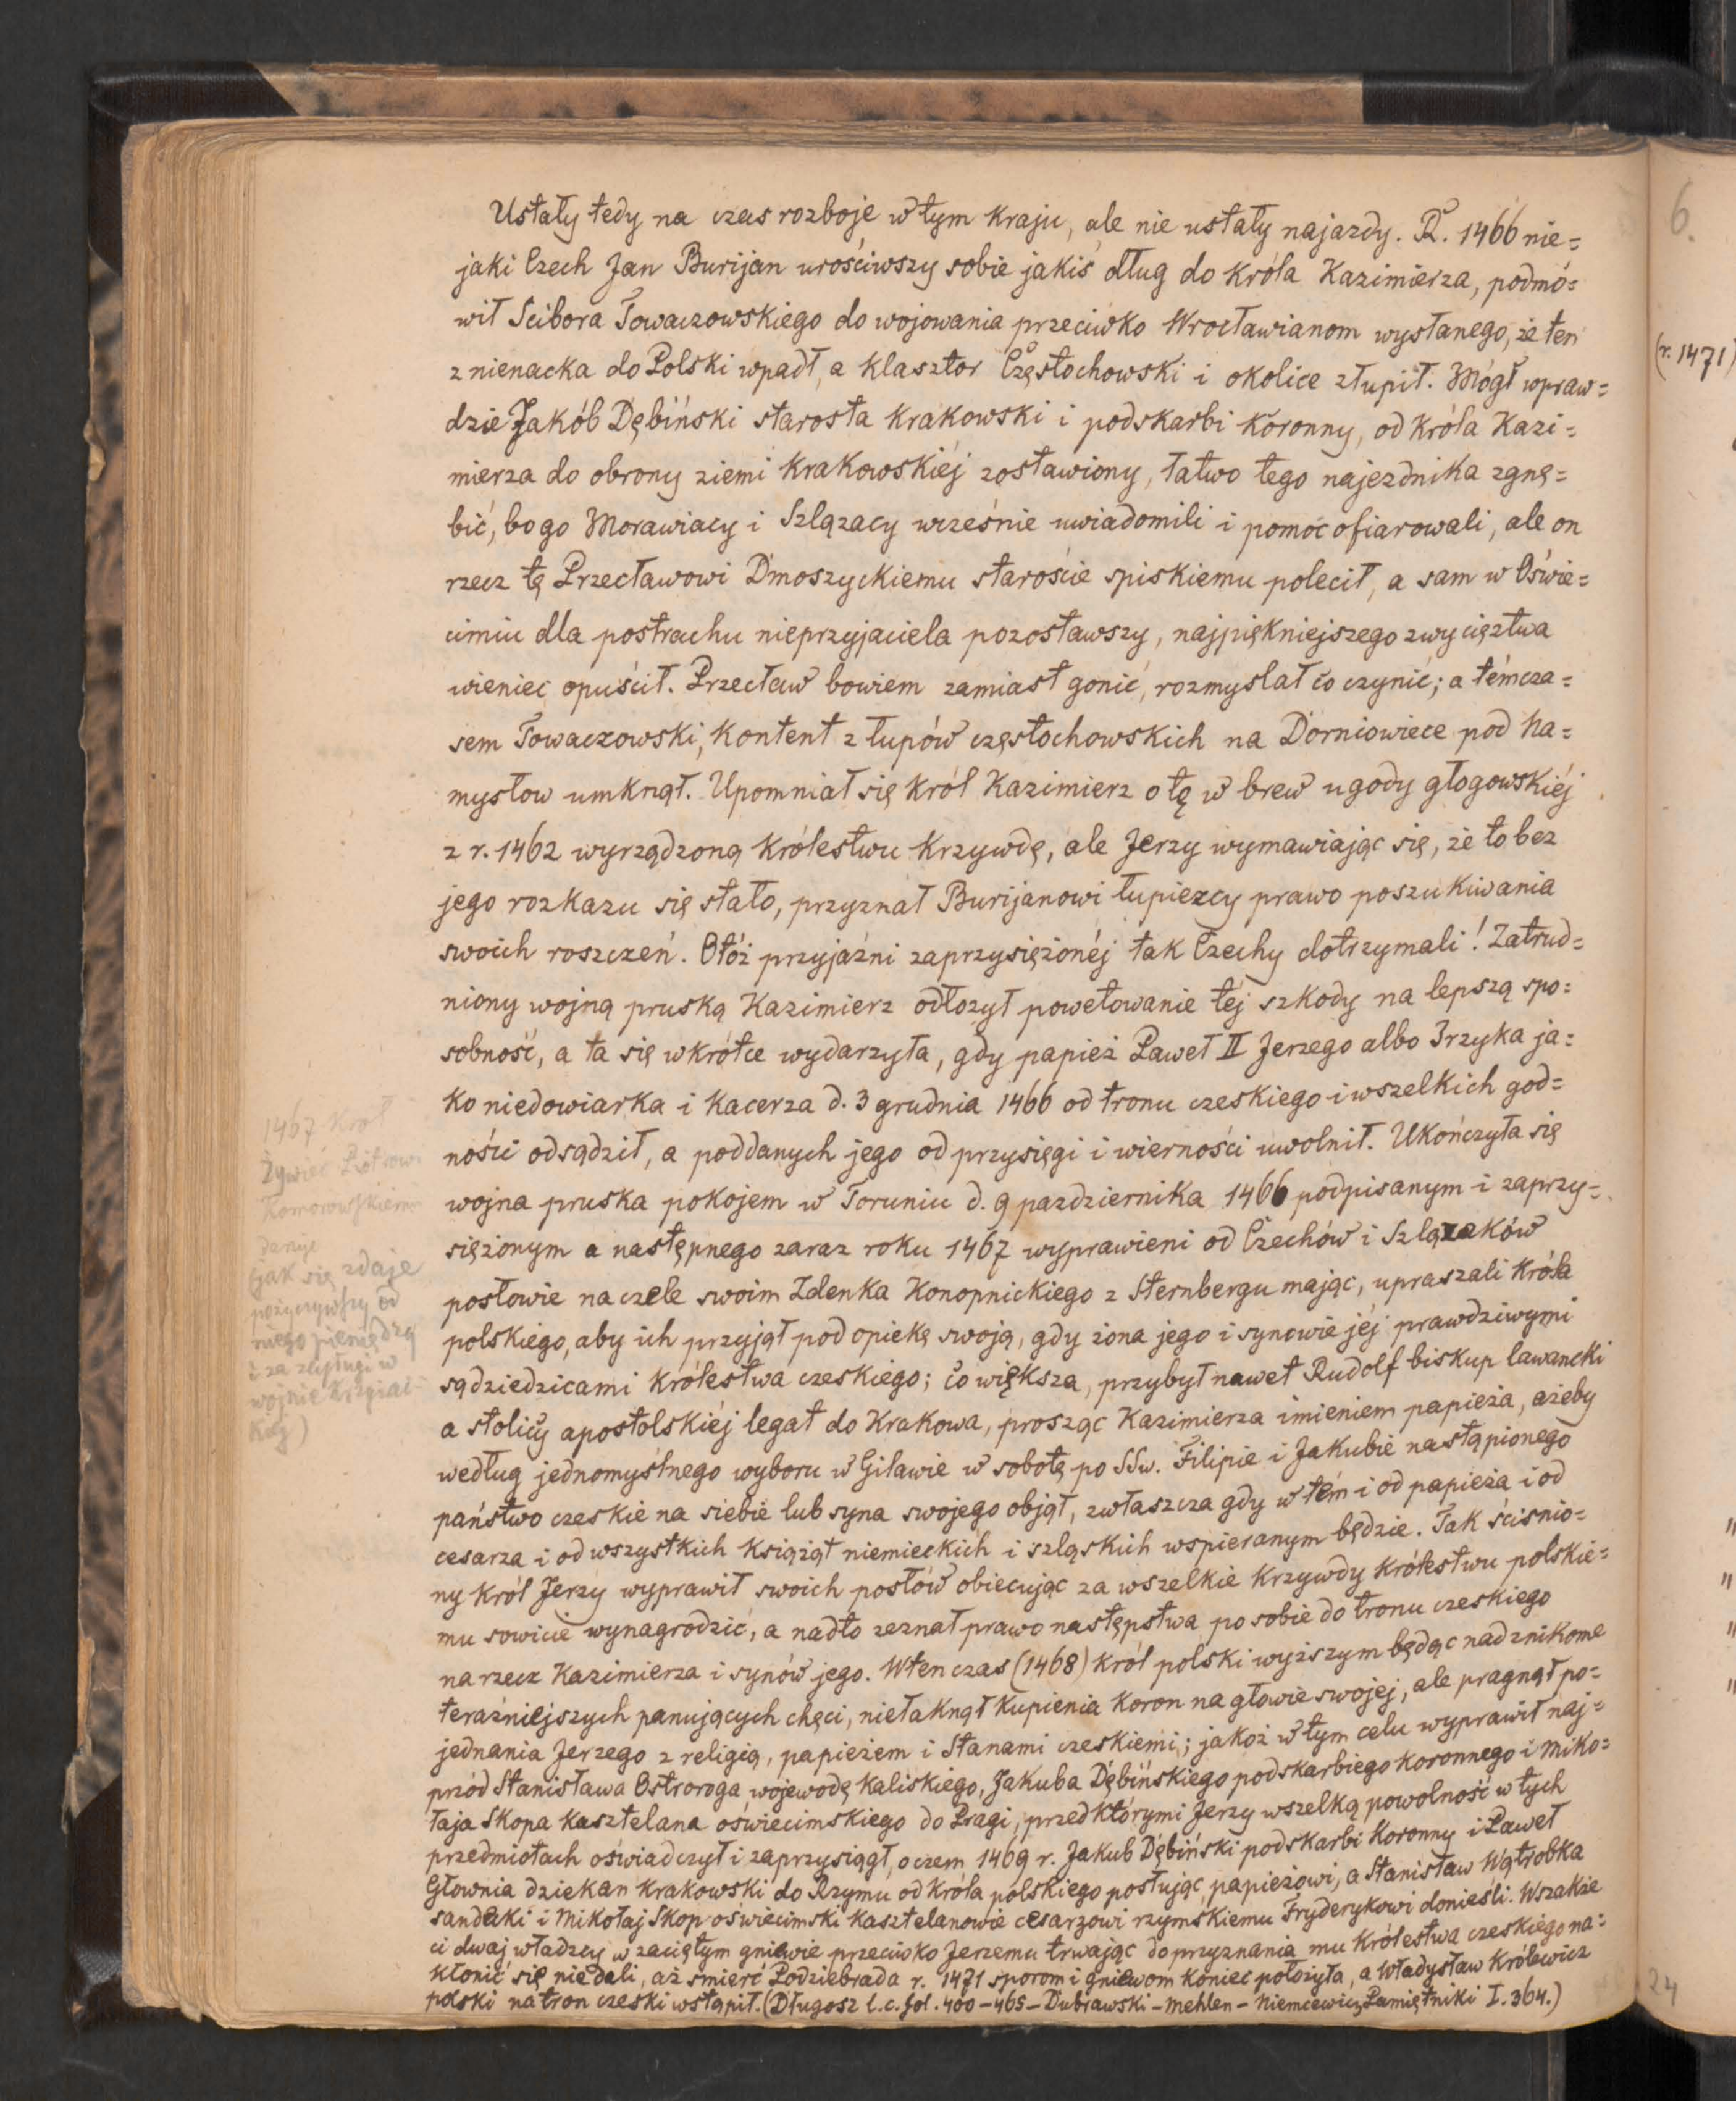 Ustały tedy na czas rozboje w tym kraju, ale nie ustały najazdy. R. 1466 nie=
jaki Czech Jan Burijan urościwszy sobie jakiś dług do króla Kazimierza, podmó=
wił Scibora Towaczowskiego do wojowania przeciwko Wrocławianom wysłanego, że ten
z nienacka do Polski wpadł, a klasztor Częstochowski i okolice złupił. Mógł wpraw=
dzie Jakób Dębiński starosta krakowski i podskarbi koronny, od króla Kazi=
mierza do obrony ziemi krakowskiéj zostawiony, łatwo tego najezdnika zgnę=
bić, bo go Morawiacy i Szlązacy wrześnie uwiadomili i pomoc ofiarowali, ale on
rzecz tę Przecławowi Dmoszyckiemu staroście spiskiemu polecił, a sam w Oświe=
cimiu dla postrachu nieprzyjaciela pozostawszy, najpiękniejszego zwycięztwa
wieniec opuścił. Przecław bowiem zamiast gonić, rozmyslał co czynić; a témcza=
sem Towaczowski, kontent z łupów częstochowskich na Dorniowiece pod Na=
mysłow umknął. Upomniał się król Kazimierz o tę w brew ugody głogowskiéj
z r. 1462 wyrządzoną królestwu krzywdę, ale Jerzy wymawiając się, że to bez
jego rozkazu się stało, przyznał Burijanowi łupiezcy prawo poszukiwania
swoich roszczeń. Otóż przyjaźni zaprzysiężonéj tak Czechy dotrzymali! Zatrud=
niony wojną pruską Kazimierz odłozył powetowanie téj szkody na lepszą spo=
sobność, a ta się wkrótce wydarzyła, gdy papież Paweł II Jerzego albo Irzyka ja=
ko niedowiarka i kacerza d. 3 grudnia 1466 od tronu czeskiego i wszelkich god=
ności odsądził, a poddanych jego od przysięgi i wierności uwolnił. Ukończyła się
wojna pruska pokojem w Toruniu d. 9 pazdziernika 1466 podpisanym i zaprzy=
siężonym a następnego zaraz roku 1467 wyprawieni od Czechów i Szlązaków
posłowie na czele swoim Zdenka Konopnickiego z Sternbergu mając, upraszali króla
polskiego, aby ich przyjął pod opiekę swoją, gdy żona jego i synowie jéj prawdziwymi
są dziedzicami królestwa czeskiego; co większa, przybył nawet Rudolf biskup lawancki
a stolicy apostolskiéj legat do Krakowa, prosząc Kazimierza imieniem papieża, ażeby
według jednomyślnego wyboru w Giławie w sobotę po SSw. Filipie i Jakubie nastąpionego
państwo czeskie na siebie lub syna swojego objął, zwłaszcza gdy w tém i od papieża i od
cesarza i od wszystkich książąt niemieckich i szląskich wspieranym będzie. Tak ściśnio=
ny król Jerzy wyprawił swoich posłów obiecując za wszelkie krzywdy królestwu polskie=
mu sowicie wynagrodzić, a nadto zeznał prawo następstwa po sobie do tronu czeskiego
na rzecz Kazimierza i synów jego. Wtenczas (1468) król polski wyższym będąc nad znikome
teraźniejszych panujących chęci, nie łaknął kupienia koron na głowie swojej, ale pragnął po=
jednania Jerzego z religią, papieżem i Stanami czeskiemi; jakoż w tym celu wyprawił naj=
przód Stanisława Ostroroga wojewodę kaliskiego, Jakuba Dębińskiego podskarbiego koronnego i Miko=
łaja Skopa kasztelana oświecimskiego do Pragi, przed którymi Jerzy wszelką powolność w tych
przedmiotach oświadczył i zaprzysiągł, o czem 1469 r. Jakub Dębiński podskarbi koronny i Paweł
Głownia dziekan krakowski do Rzymu od króla polskiego posłując papieżowi, a Stanisław Wątrobka
sandecki i Mikołaj Skop oświecimski kasztelanowie cesarzowi rzymskiemu Fryderykowi donieśli. Wszakże
ci dwaj władzcy w zaciętym gniewie przeciwko Jerzemu trwając do przyznania mu królestwa czeskiego na=
kłonić się nie dali, aż smierć Podziebrada r. 1471 sporom i gniewom koniec położyła, a Władysław królewicz
polski na tron czeski wstąpił. (Długosz l.c. fol. 400-465 - Dubrawski - Mehlen - Niemcewicz Pamiętniki I. 364.)
1467 Król
Żywiec Piotrowi
Komorowskiemu
daruje
(jak się zdaje
pożyczywszy od
niego pieniędzy
i za zasługi w
wojnie Krzyżac-
kiéj)
6.
(r. 1471)
24